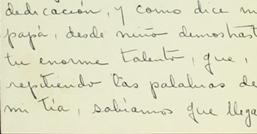 dedicación, y como dice m
papá, desde niño demostrast
tu enorme talento, que,
repitiendo las palabras de
mi tía, sabíamos que llega